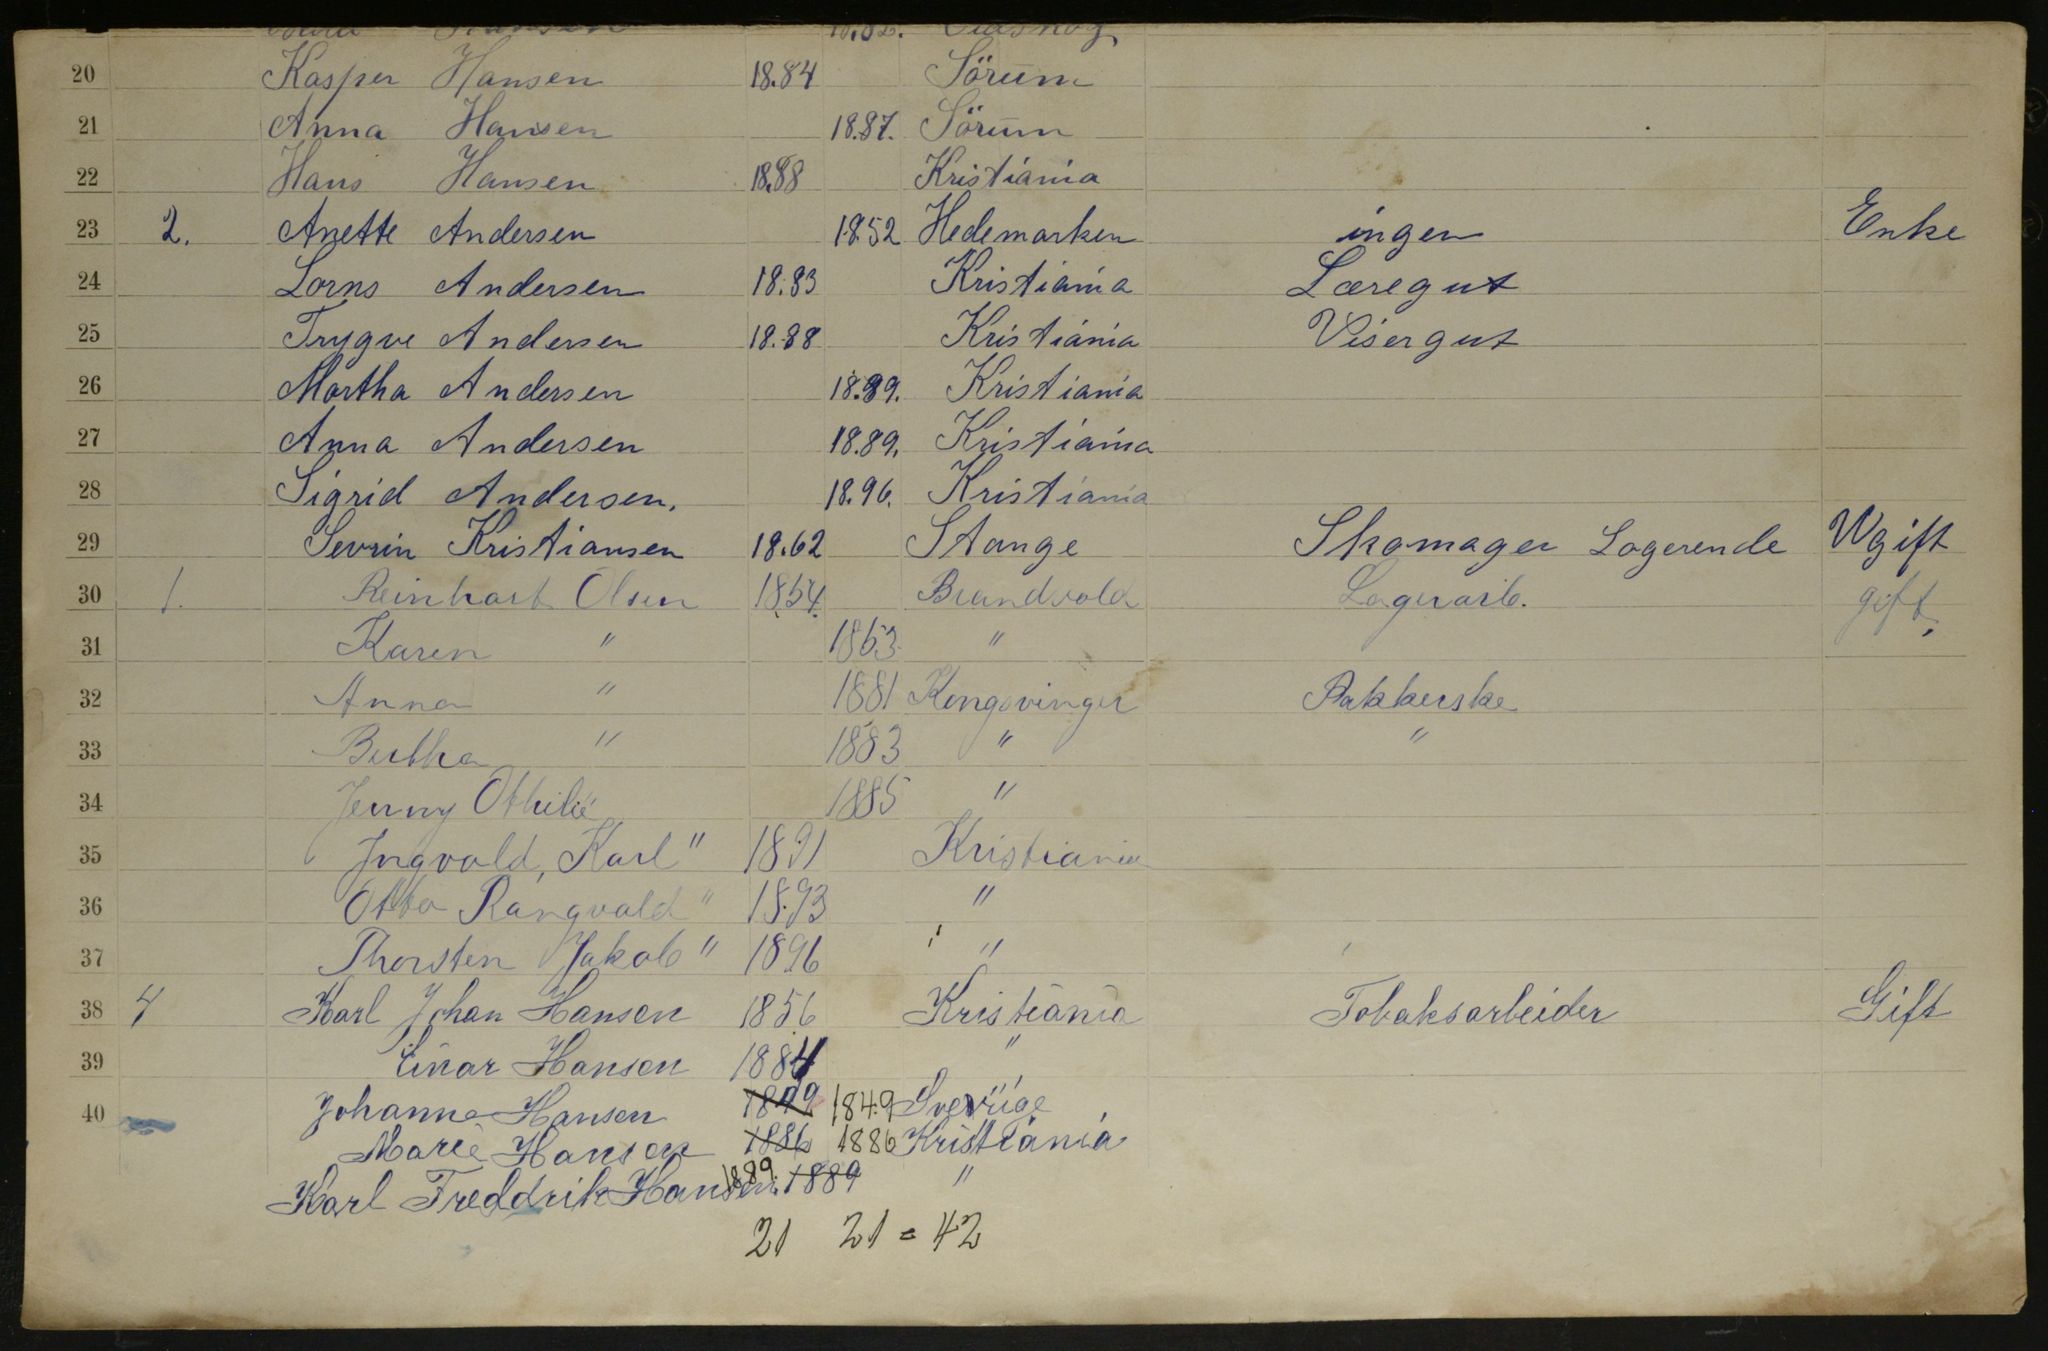 Hansen
20 Kasper Hansen 18.84 Sörum
21 Anna Hansen 18.87. Sörum
22 Hans Hansen 18.88 Kristiania
23 2. Anette Andersen 1852 Hedemarken ingen Enke
24 Lorns Andersen 18.83 Kristiania Læregut
25 Trygve Andersen 18.88 Kristiania Visergut
26 Martha Andersen 18.89. Kristiania
27 Anna Andersen 18.89. Kristiania
28 Sigrid Andersen. 18.96. Kristiania
29 Sevrin Kristiansen 18.62 Stange Skomager Logerende Ugift
30 1. Reinhart Olsen 1854 Brandvold Lagerarb. gift.
31 Karen " 1863 "
32 Anna " 1881 Kongsvinger Pakkerske
33 Bertha " 1883 " "
34 Jenny Othilie " 1885 "
35 Ingvald, Karl " 1891 Kristiania
36 Otto Rangvald " 1893 "
37 Thorsten Jakob " 1896 "
38 4 Karl Johan Hansen 1856 Kristiania Tobaksarbeider Gift
39 Einar Hansen 1884 "
40 Johanne Hansen 1849 1849 Sverige
Marie Hansen 1886 1886 Kristiania
Karl Freddrik Hansen. 1889 1889 "
21 21 = 42